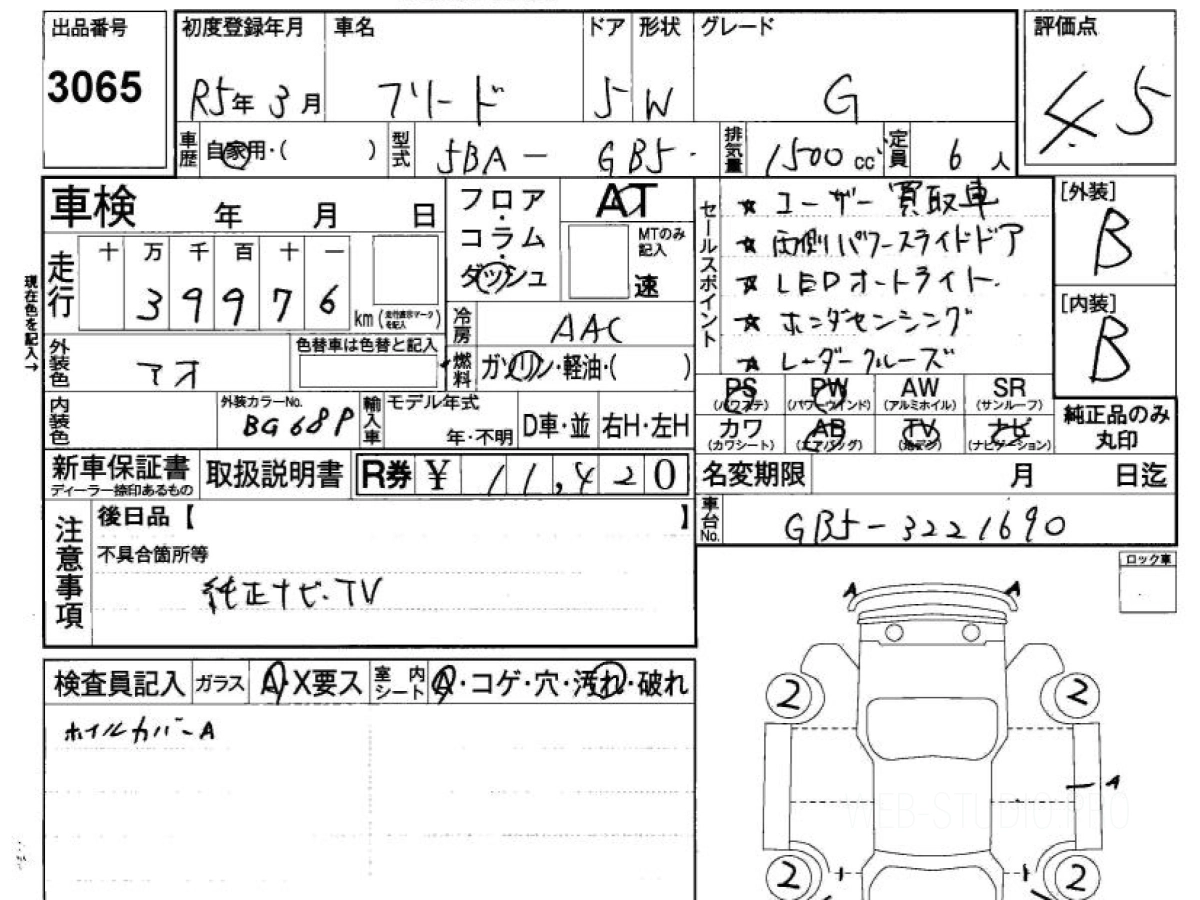 出品番号 初度登録年月 車名 ドア 形状 グレード 評価点
3065 R5年 3月 フリード 5 W G 4.5
車歴 自家用・( ) 型式 5BA - GB5 排気量 1500 cc 定員 6 人
車検 年 月 日
フロア・コラム・ダッシュ AT
MTのみ記入 速
セールスポイント
☆ ユーザー買取車
☆ 両側パワースライドドア
☆ LEDオートライト
☆ ホンダセンシング
☆ レーダークルーズ
[外装] B
[内装] B
現在色を記入→
走行 十 万 千 百 十 一
39976 km (走行表示マークを記入)
冷房 AAC
外装色 アオ 色替車は色替と記入
燃料 ガソリン・軽油・( )
PS (パワステ) PW (パワーウインド) AW (アルミホイル) SR (サンルーフ)
カワ (カワシート) AB (エアバッグ) TV (地デジ) ナビ (ナビゲーション)
純正品のみ丸印
内装色 外装カラーNo. BG68P 輸入車 モデル年式 年・不明 D車・並 右H・左H
新車保証書 ディーラー捺印あるもの 取扱説明書 R券 ¥ 11,420
名変期限 月 日迄
車台No. GB5-3221690
注意事項 後日品【 】
不具合箇所等
純正ナビ・TV
ロック車
検査員記入 ガラス A・X要ス 室内シート A・コゲ・穴・汚れ・破れ
ホイルカバーA
A A
2 2
A
2 2
WEB-STUDIO.PRO